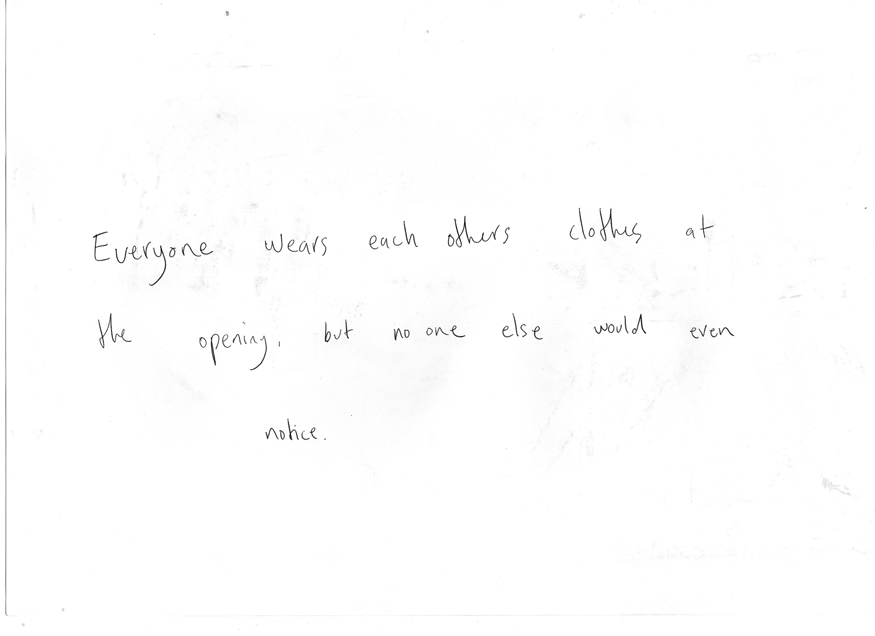 Everyone wears each others clothes at
the opening, but no one else would even
notice.